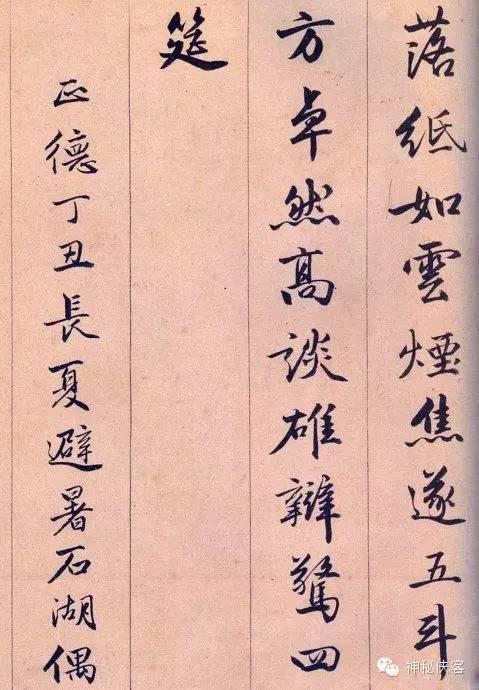 落紙如雲煙焦遂五斗
方卓然高談雄辯驚四
筵
正德丁丑長夏避暑石湖偶
神秘侠客